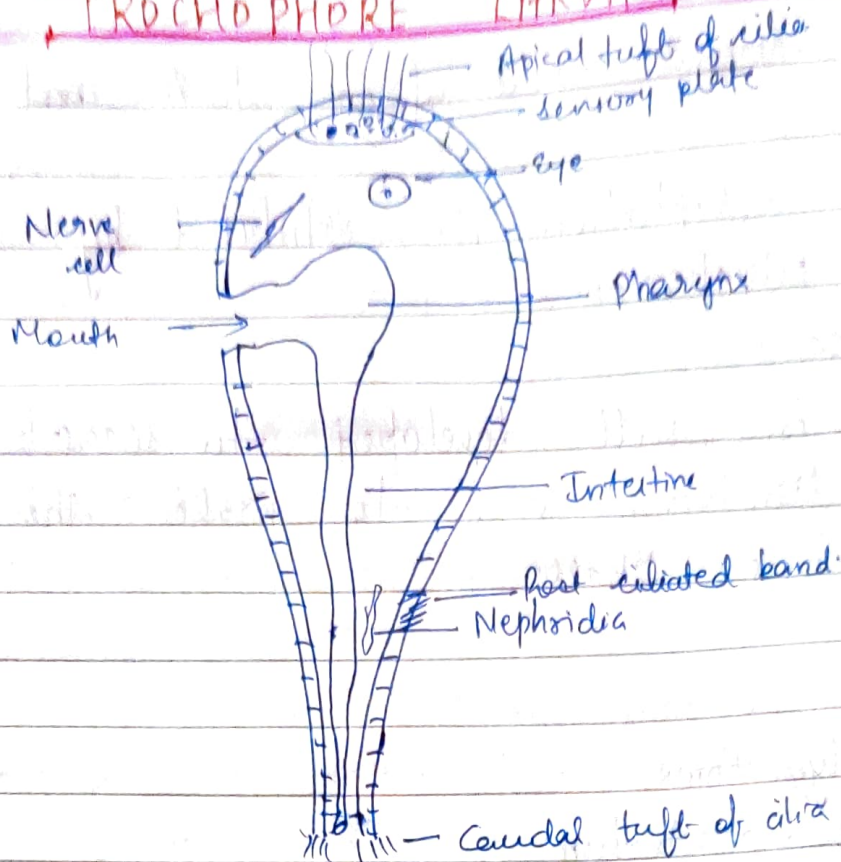 TROCHOPHORE LARVA
Apical tuft of cilia
sensory plate
Eye
Nerve
cell
Pharynx
Mouth
Intertine
Post ciliated band.
Nephridia
Caudal tuft of cilia